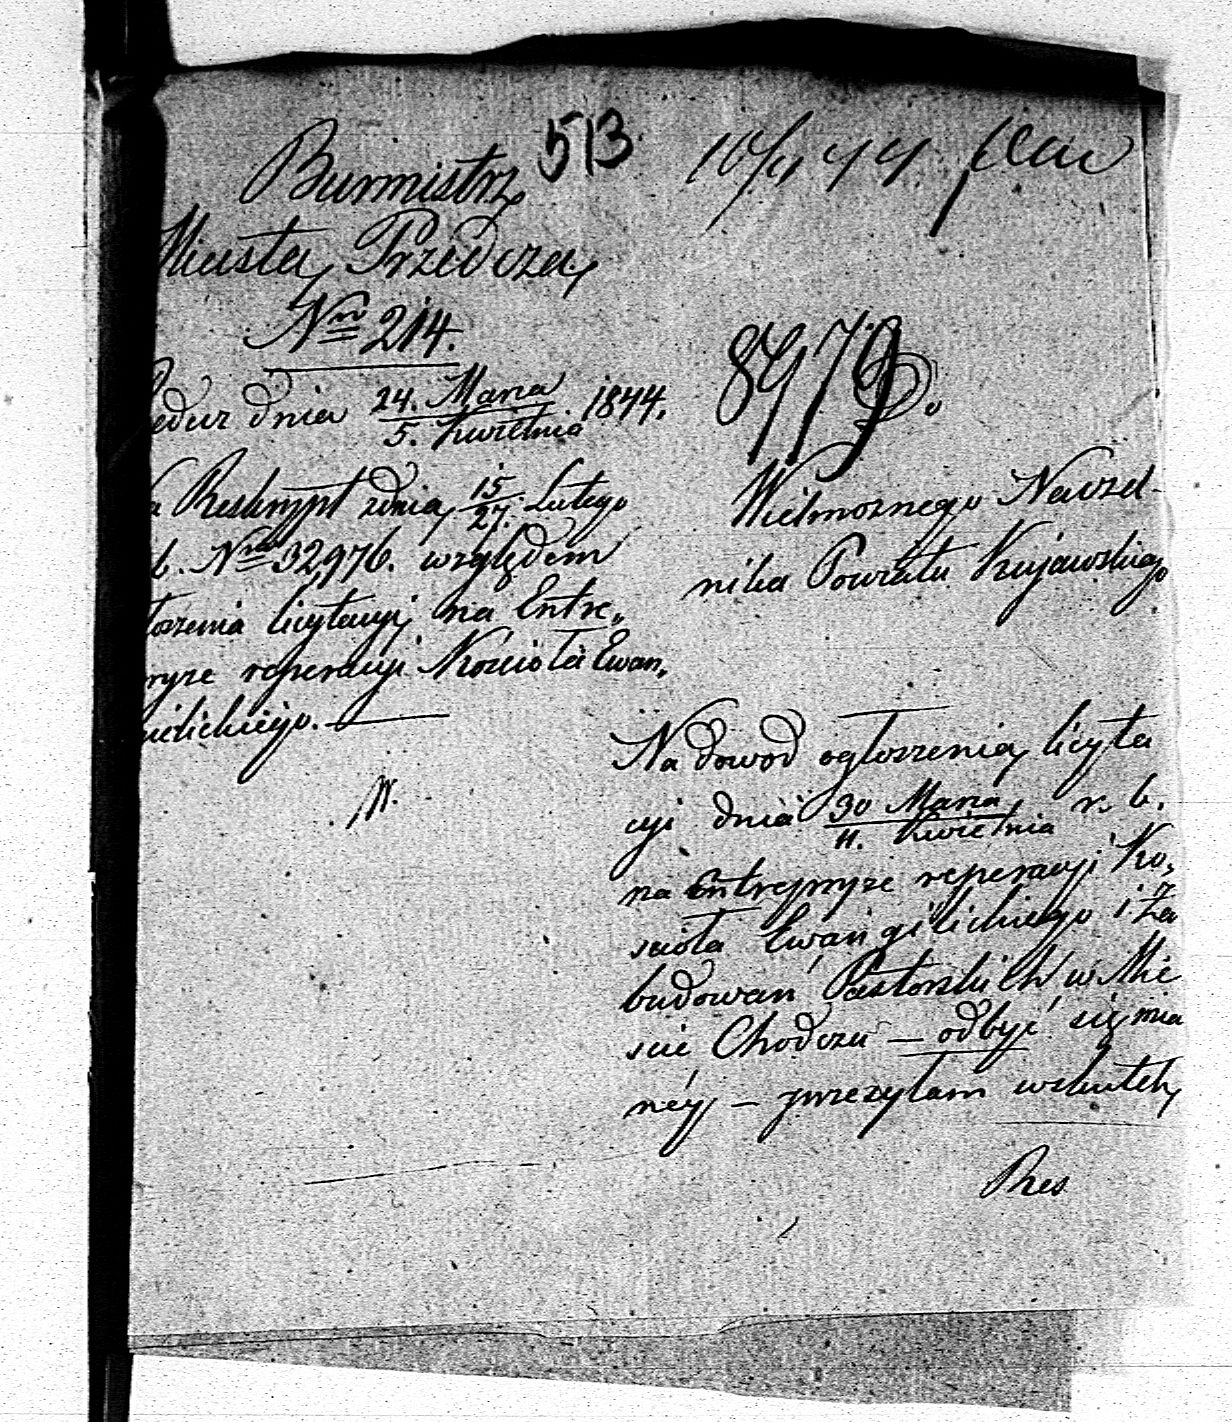 513
10/4 44
Burmistrz
Miasta Przedcza
Nro 214.
dnia 24. Marca / 5. Kwietnia 1844.
8979
Reskrypt zdnia 15/27. Lutego
b. Nro 32976. względem
łoszenia licytacyi na Entre„
pryze reperacyi Kościoła Ewan„
gielickiégo.
Wielmoznego Naczel-
nika Powiatu Kujawskiego
Na dowod ogłoszenia licyta
cyi dnia 30 Marca / 11. Kwietnia r. b.
na Entrepryze reperacyi Ko„
scioła Ewangielickiego i Za
budowań Pastorskich w Mie
scie Chodczu — odbyć się mia
néy — przezyłam wskutek
Res